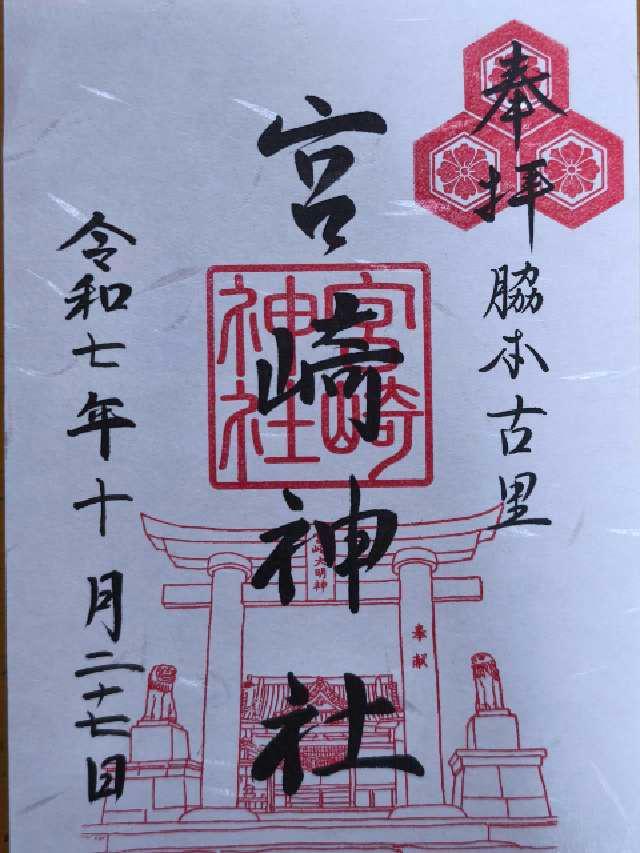 奉拝
脇本古里
宮崎神社
宮崎
神社
崎大明神
奉献
令和七年十月二十七日